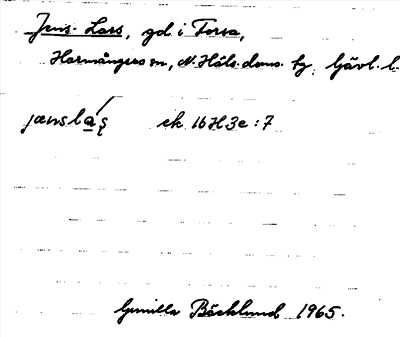 Jens-Lars, gd i Torsa,
Harmångers sn, N. Häls. doms. tg. Gävl. l.
jænsla̱ʹs̨ ek 16H3e:7
Gunilla Bäcklund 1965.